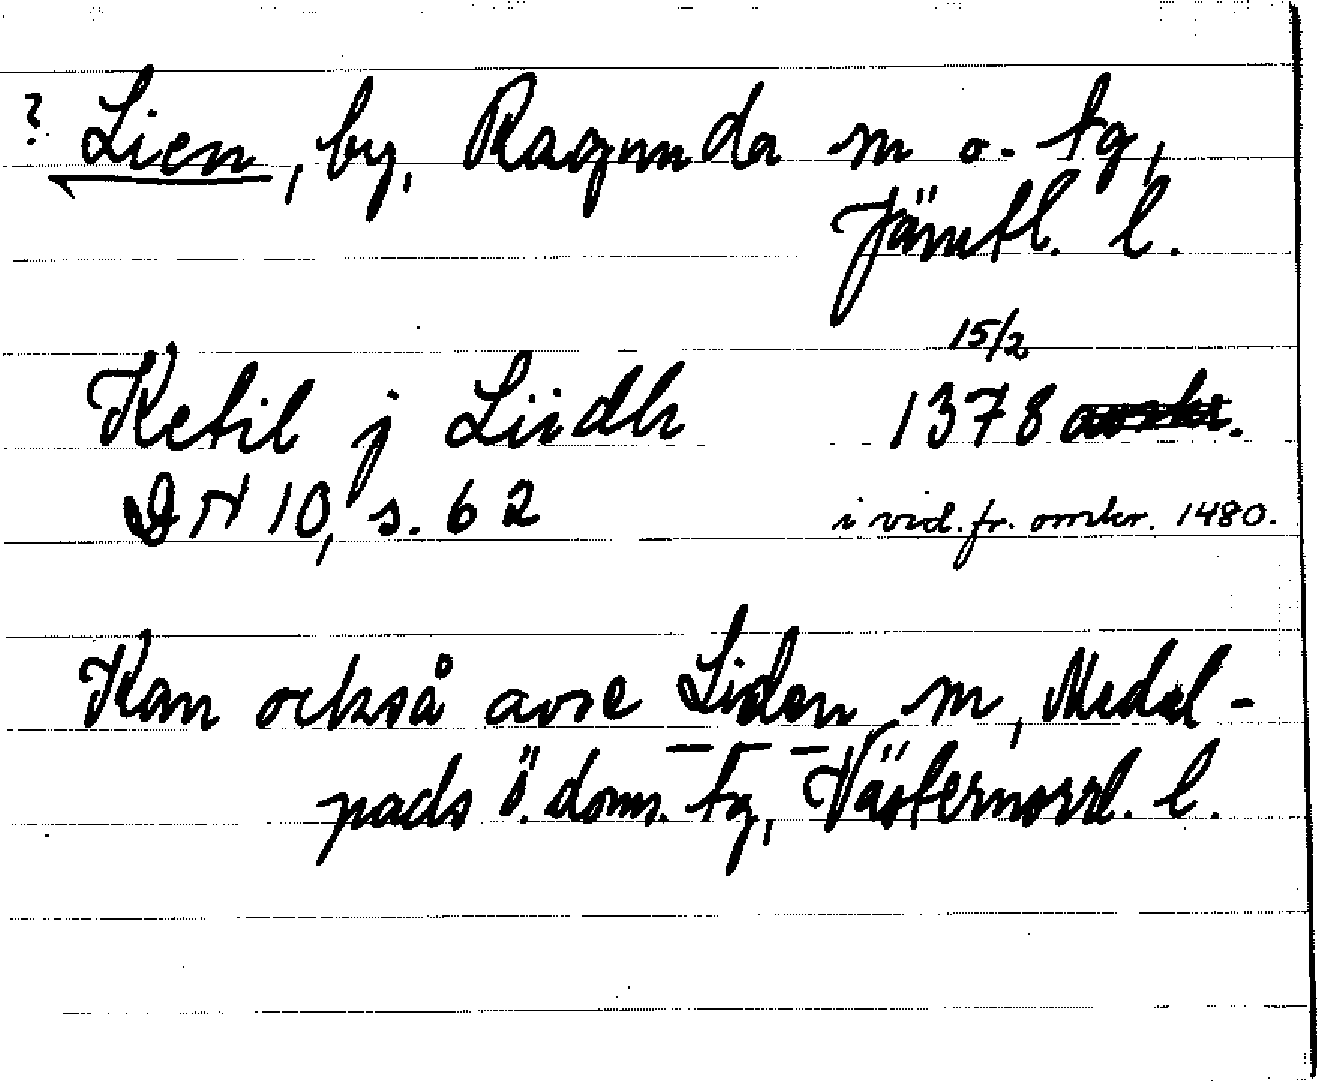 ? Lien, by, Ragunda sn o. tg,
Jämtl. l.
15/2
Ketil j Liidh 1378
DN 10, s. 62 i vid. fr. omkr. 1480.
Kan också avse Liden sn, Medel-
pads ö. doms. tg, Västernorrl. l.